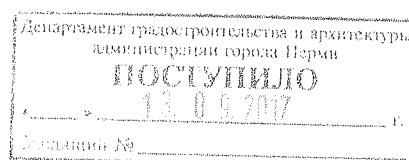 Департамент градостроительства и архитектуры
администрации города Перми
ПОСТУПИЛО
" " 13 09 2017 г.
№